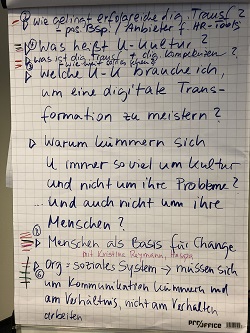 ▷ Wie gelingt erfolgreiche dig. Transf.?
→ pos. Bsp. / Anbieter f. HR-Tools
▷ Was heißt U-Kultur?
▷ was ist dig. Transf. + dig. Kompetenzen?
▷ Welche U-K brauche ich,
um eine digitale Trans-
formation zu meistern?
▷ Warum kümmern sich
U immer so viel um Kultur
und nicht um ihre Probleme?
... und auch nicht um ihre
Menschen?
▷ Menschen als Basis für Change
mit Kristine
▷ Org = soziales System → müssen sich
um Kommunikation kümmern und
am Verhältnis, nicht am Verhalten
arbeiten
PROFFICE